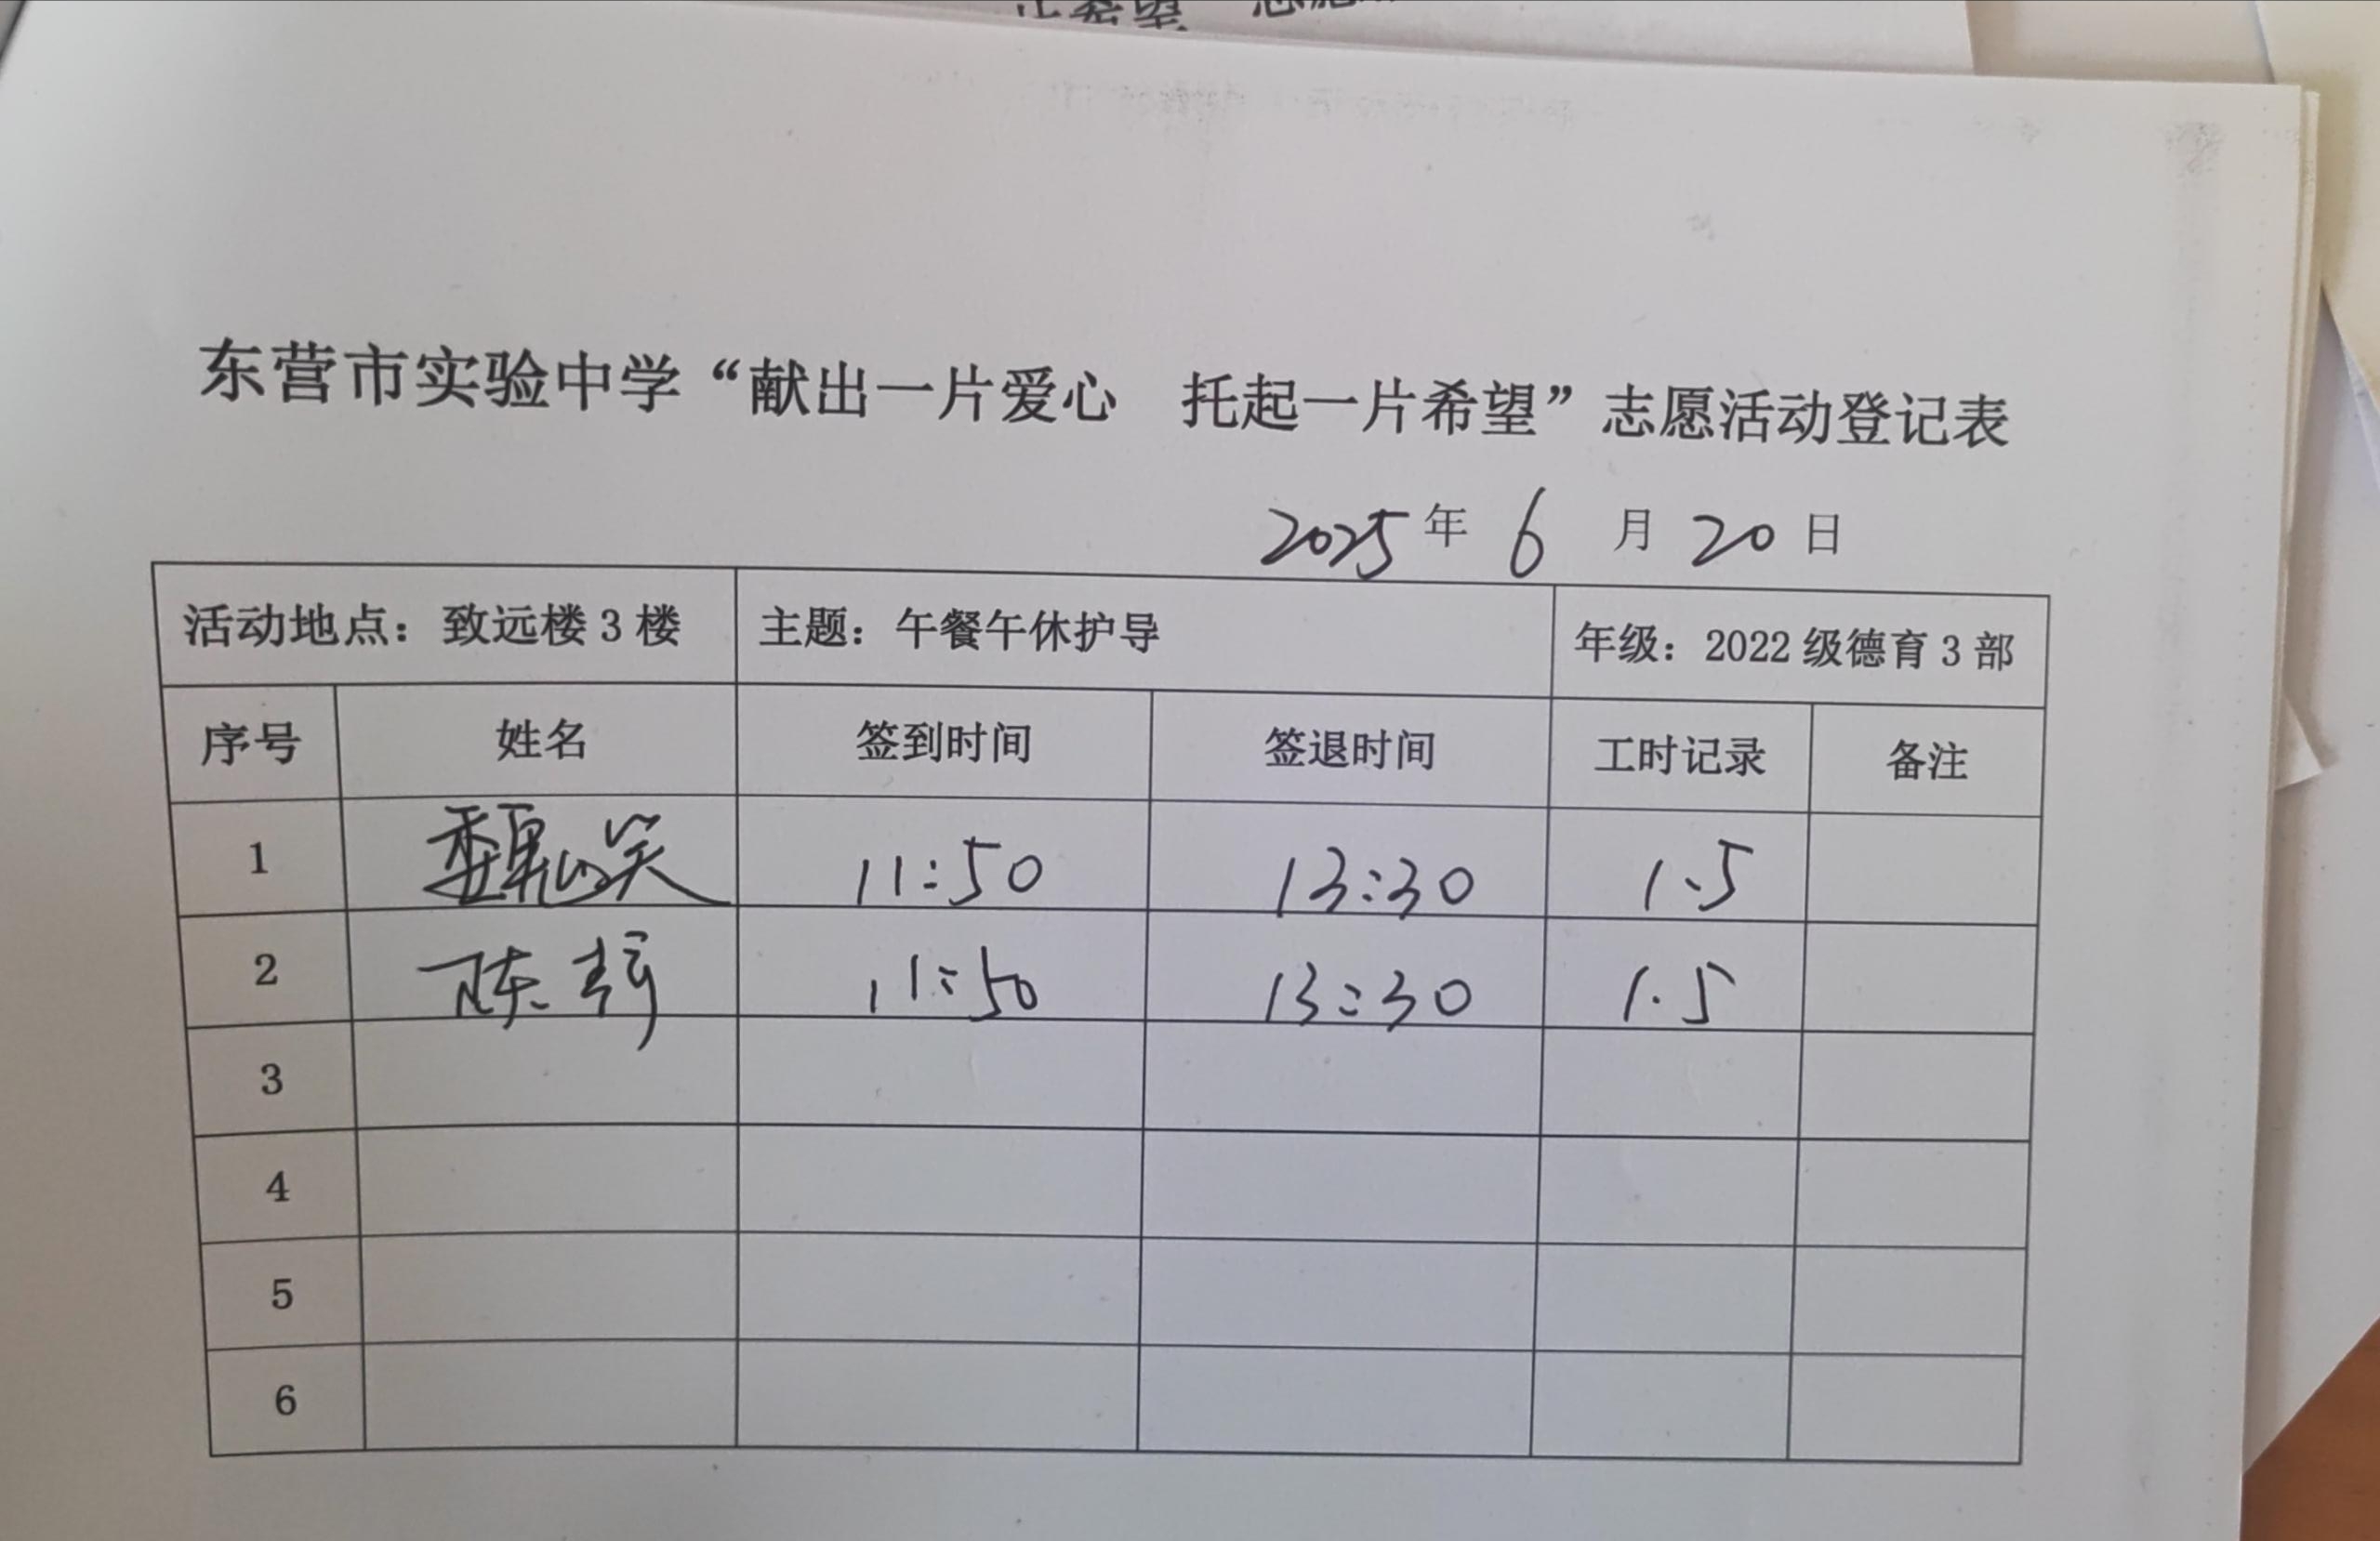 东营市实验中学“献出一片爱心 托起一片希望”志愿活动登记表
2025年 6 月 20 日
活动地点：致远楼 3 楼 主题：午餐午休护导 年级：2022 级德育 3 部
序号 姓名 签到时间 签退时间 工时记录 备注
1 魏 笑 11:50 13:30 1.5
2 陈 11:50 13:30 1.5
3
4
5
6